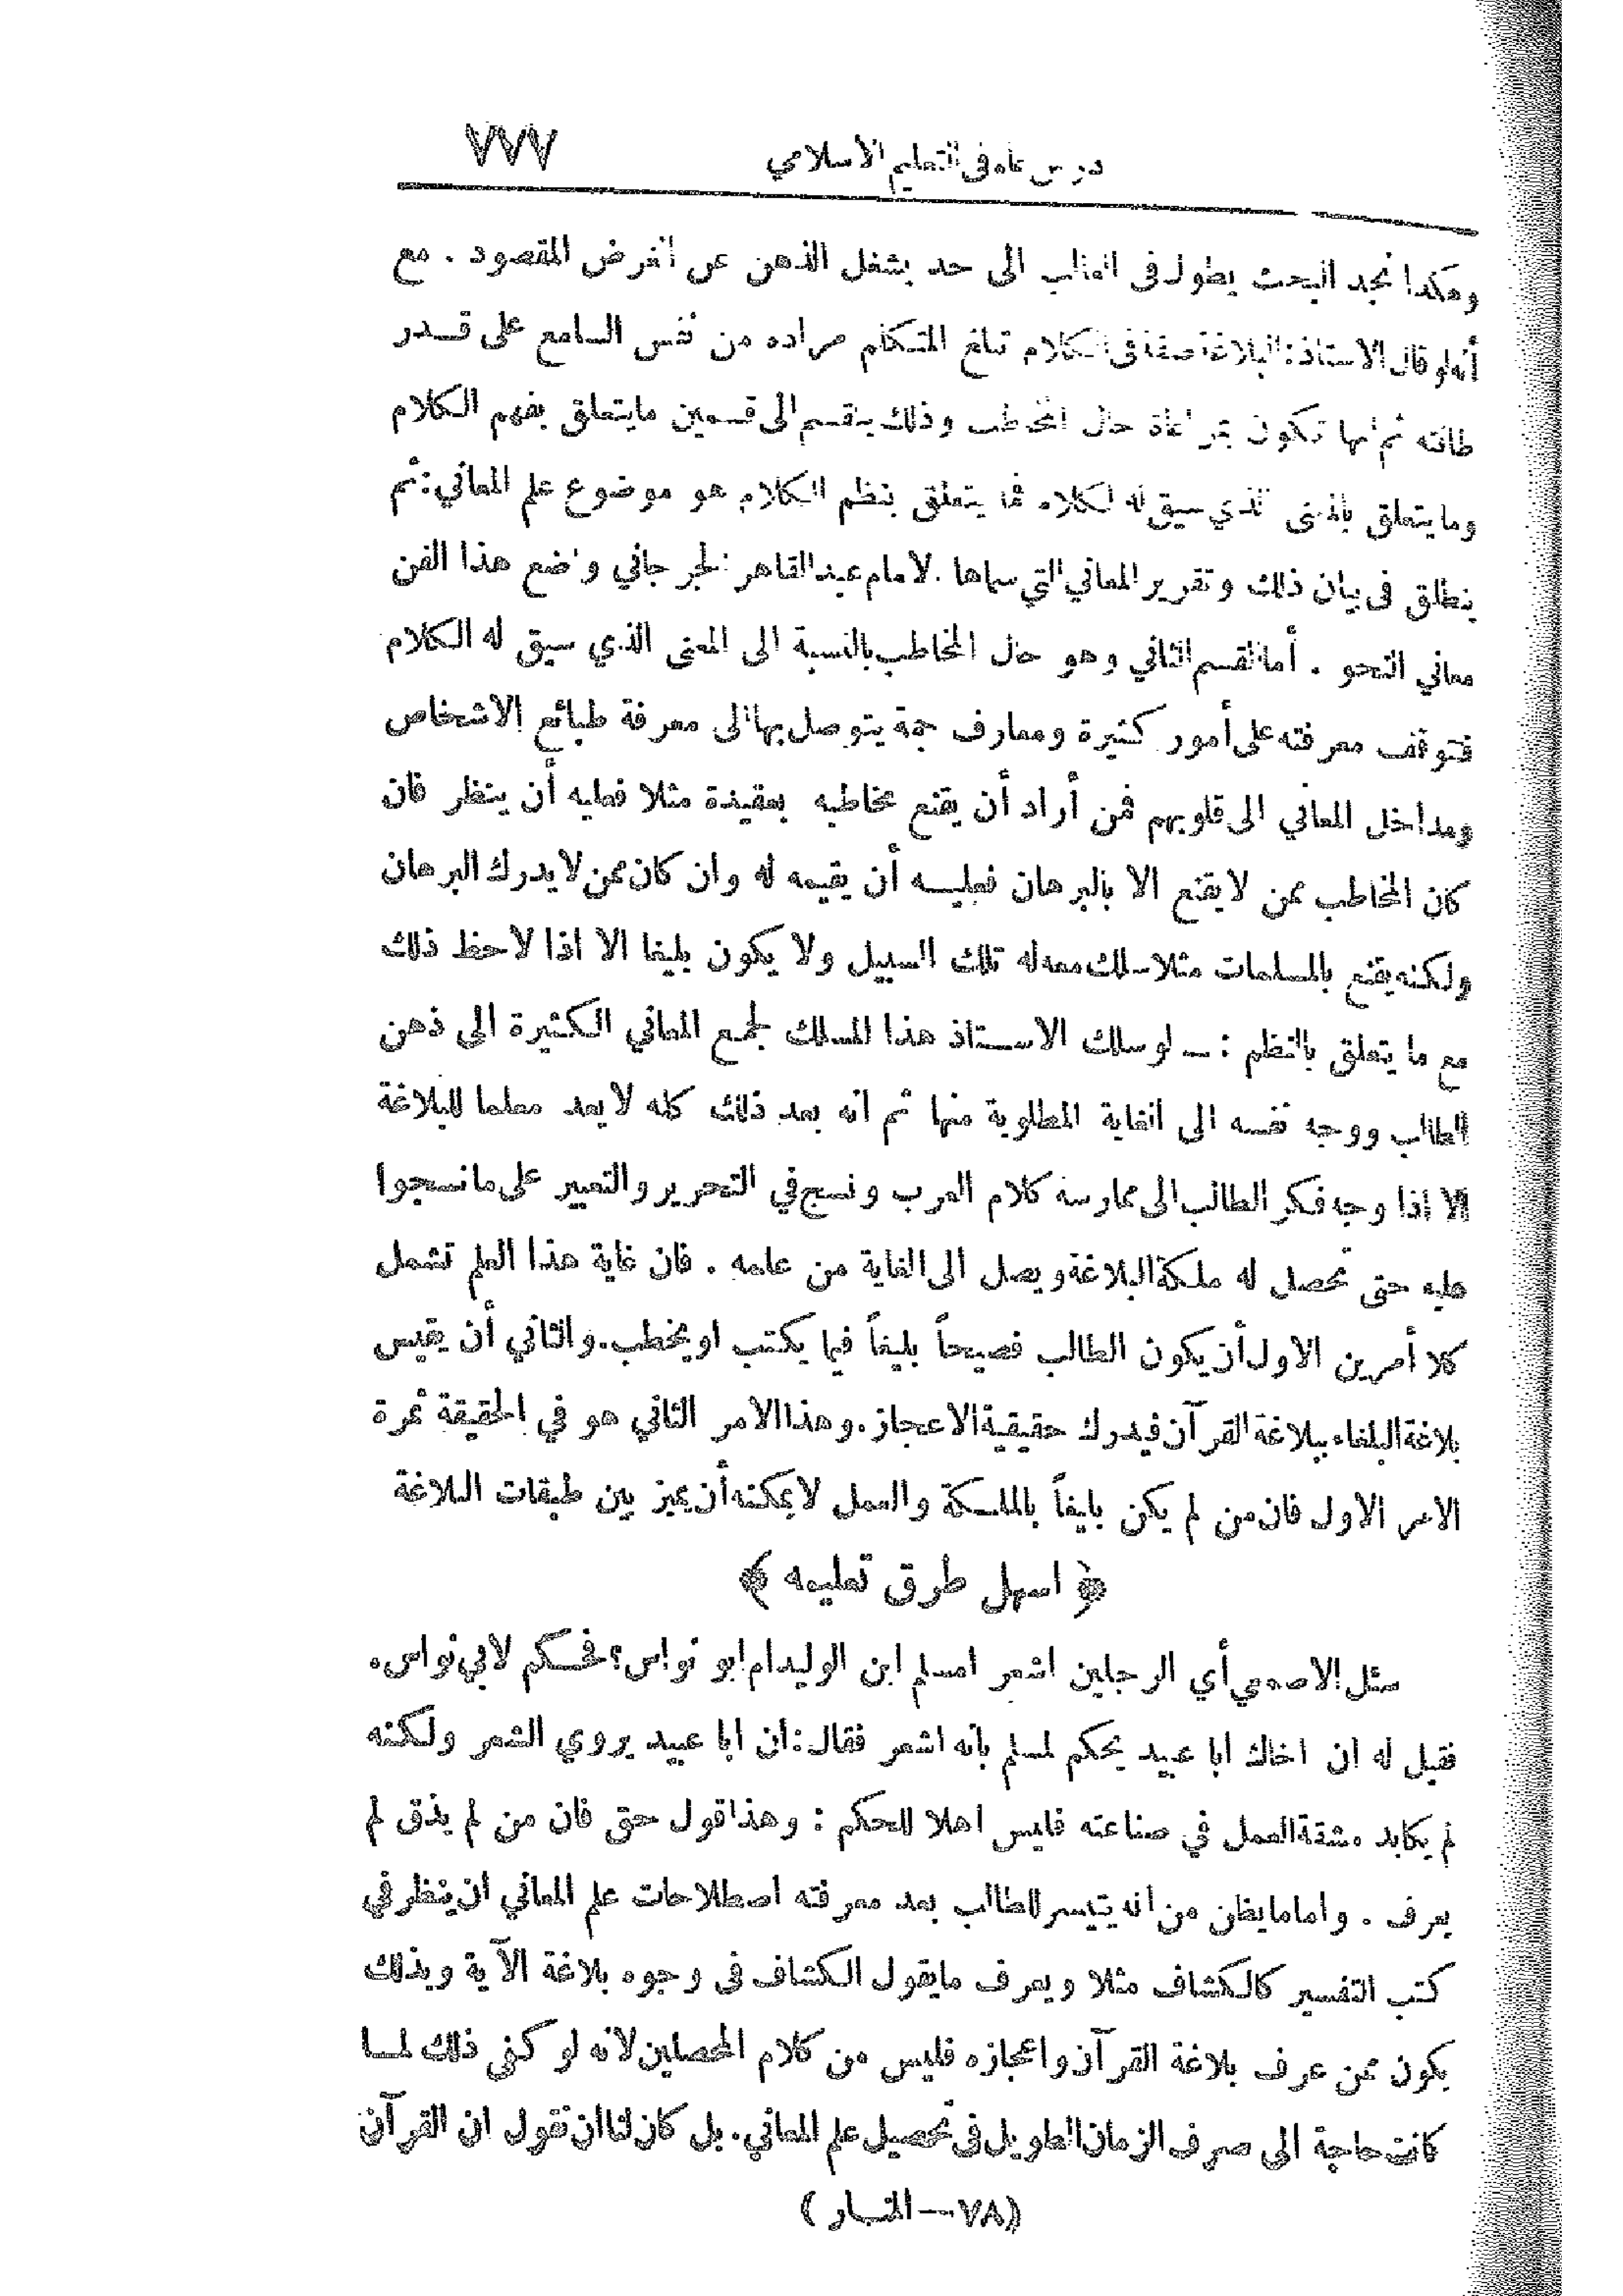 درس عام في التعليم الاسلامي ٧٧٧
وهكذا نجد البحث يطول في الغالب الى حد يشغل الذهن عن الغرض المقصود . مع
أنه لو قال الاستاذ : البلاغة صفة في الكلام تبلغ المتكلم مراده من نفس السامع على قدر
طاقته ثم انها تكون بمراعاة حال المخاطب وذلك ينقسم الى قسمين ما يتعلق بفهم الكلام
وما يتعلق بالمعنى الذي سيق له الكلام فما يتعلق بنظم الكلام هو موضوع علم المعاني : ثم
ينطلق في بيان ذلك وتقرير المعاني التي سماها الامام عبد القاهر الجرجاني واضع هذا الفن
معاني النحو . أما القسم الثاني وهو حال المخاطب بالنسبة الى المعنى الذي سيق له الكلام
فتوقف معرفته على أمور كثيرة ومعارف جمة يتوصل بها الى معرفة طبائع الاشخاص
ومداخل المعاني الى قلوبهم فمن أراد أن يقنع مخاطبه بعقيدة مثلا فعليه أن ينظر فان
كان المخاطب ممن لا يقنع الا بالبرهان فعليه أن يقيمه له وان كان ممن لا يدرك البرهان
ولكنه يقنع بالمسلمات مثلا سلك معه له تلك السبيل ولا يكون بليغا الا اذا لاحظ ذلك
مع ما يتعلق بالنظم : ـ لو سلك الاستاذ هذا المسلك لجمع المعاني الكثيرة الى ذهن
الطالب ووجه نفسه الى الغاية المطلوبة منها ثم انه بعد ذلك كله لا يعد معلما للبلاغة
الا اذا وجه فكر الطالب الى ممارسة كلام العرب ونسج في التحرير والتعبير على ما نسجوا
عليه حتى تحصل له ملكة البلاغة ويصل الى الغاية من علمه . فان غاية هذا العلم تشمل
كلا أمرين الاول أن يكون الطالب فصيحاً بليغاً فيما يكتب او يخطب . والثاني أن يقيس
بلاغة البلغاء ببلاغة القرآن فيدرك حقيقية الاعجاز . وهذا الامر الثاني هو في الحقيقة ثمرة
الامر الاول فان من لم يكن بليغاً بالملكة والعمل لا يمكنه أن يميز بين طبقات البلاغة
﴿ اسهل طرق تعليمه ﴾
سئل الاصمعي أي الرجلين اشعر امسلم ابن الوليد ام ابو نواس ؟ فحكم لابي نواس .
فقيل له ان اخاك ابا عبيد يحكم لمسلم بانه اشعر فقال : ان ابا عبيد يروي الشعر ولكنه
لم يكابد مشقة العمل في صناعته فليس اهلا للحكم : وهذا قول حق فان من لم يذق لم
يعرف . واما ما يظن من انه يتيسر للطالب بعد معرفته اصطلاحات علم المعاني ان ينظر في
كتب التفسير كالكشاف مثلا ويعرف ما يقول الكشاف في وجوه بلاغة الآية وبذلك
يكون ممن عرف بلاغة القرآن واعجازه فليس من كلام المحصلين لانه لو كفى ذلك لما
كانت حاجة الى صرف الزمان الطويل في تحصيل علم المعاني . بل كان لنا ان نقول ان القرآن
(٧٨ — المنار)